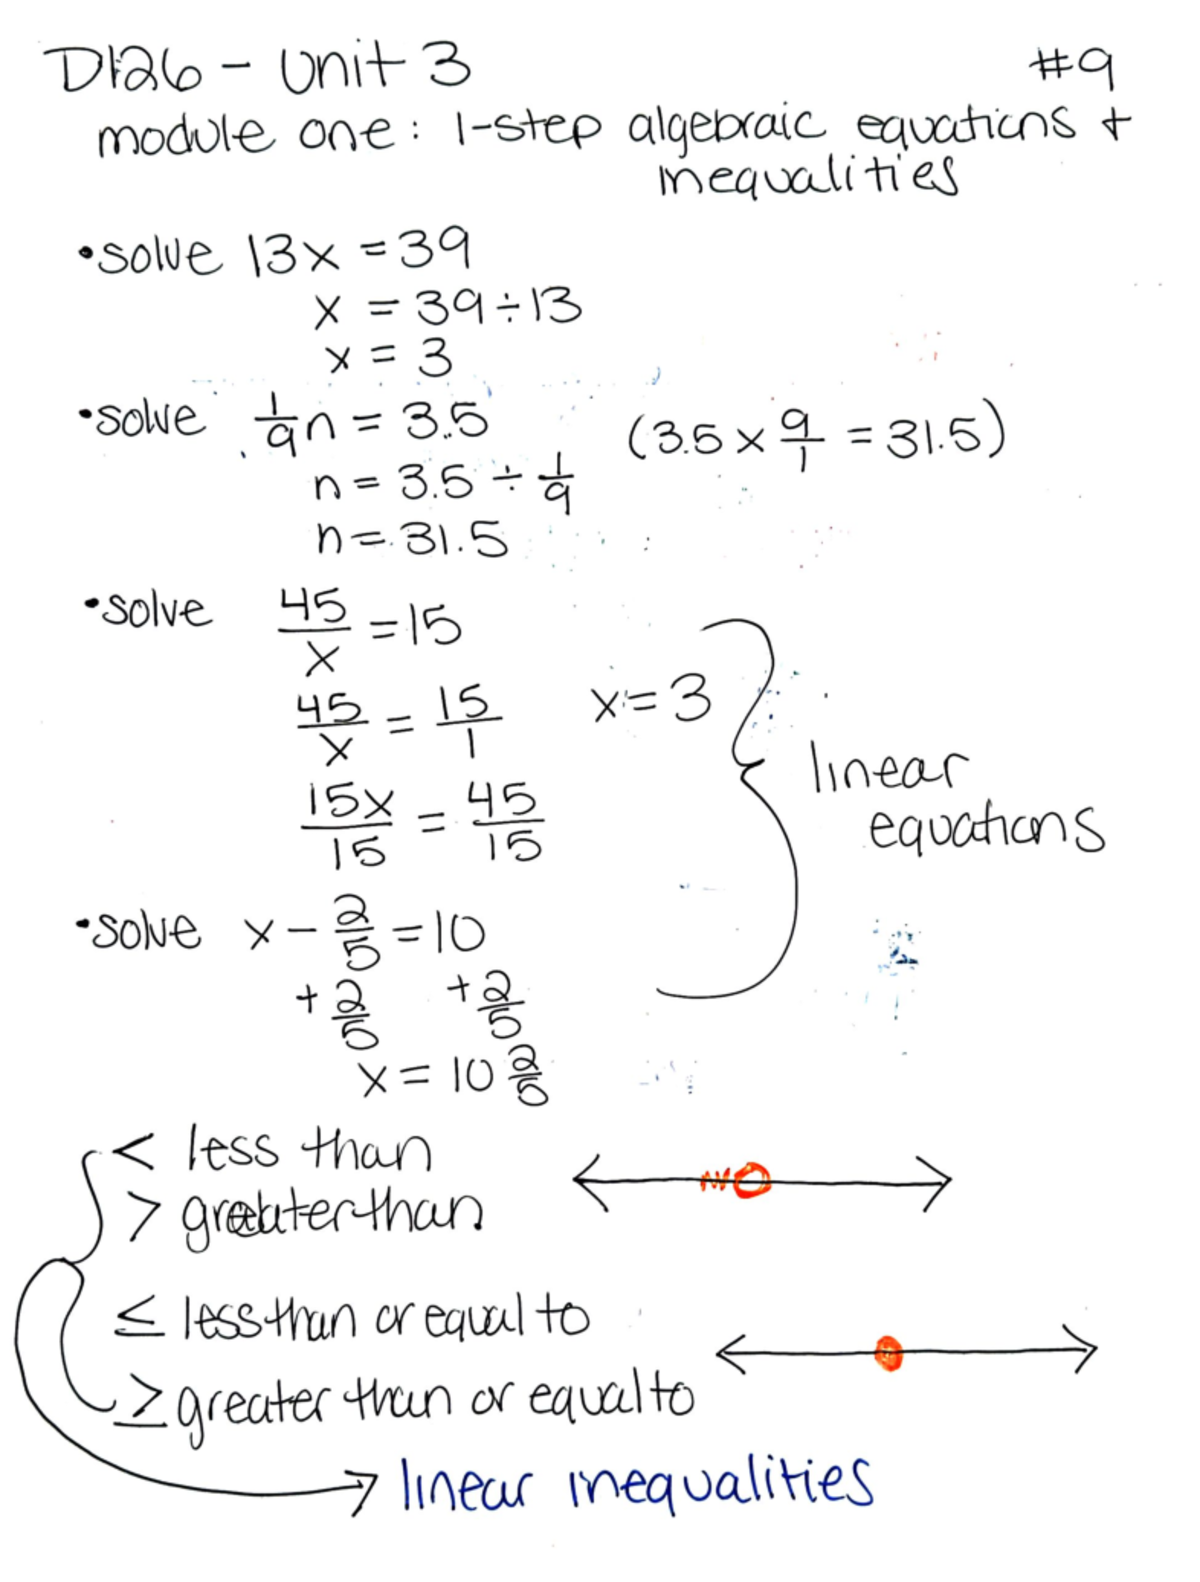 D126 - Unit 3 #9
module one: 1-step algebraic equations +
inequalities
•solve 13x = 39
x = 39 ÷ 13
x = 3
•solve 1/9 n = 3.5 (3.5 x 9/1 = 31.5)
n = 3.5 ÷ 1/9
n = 31.5
•solve 45/x = 15
45/x = 15/1 x = 3
15x/15 = 45/15
linear
equations
•solve x - 2/5 = 10
+ 2/5 + 2/5
x = 10 2/5
< less than
> greater than
≤ less than or equal to
≥ greater than or equal to
→ linear inequalities